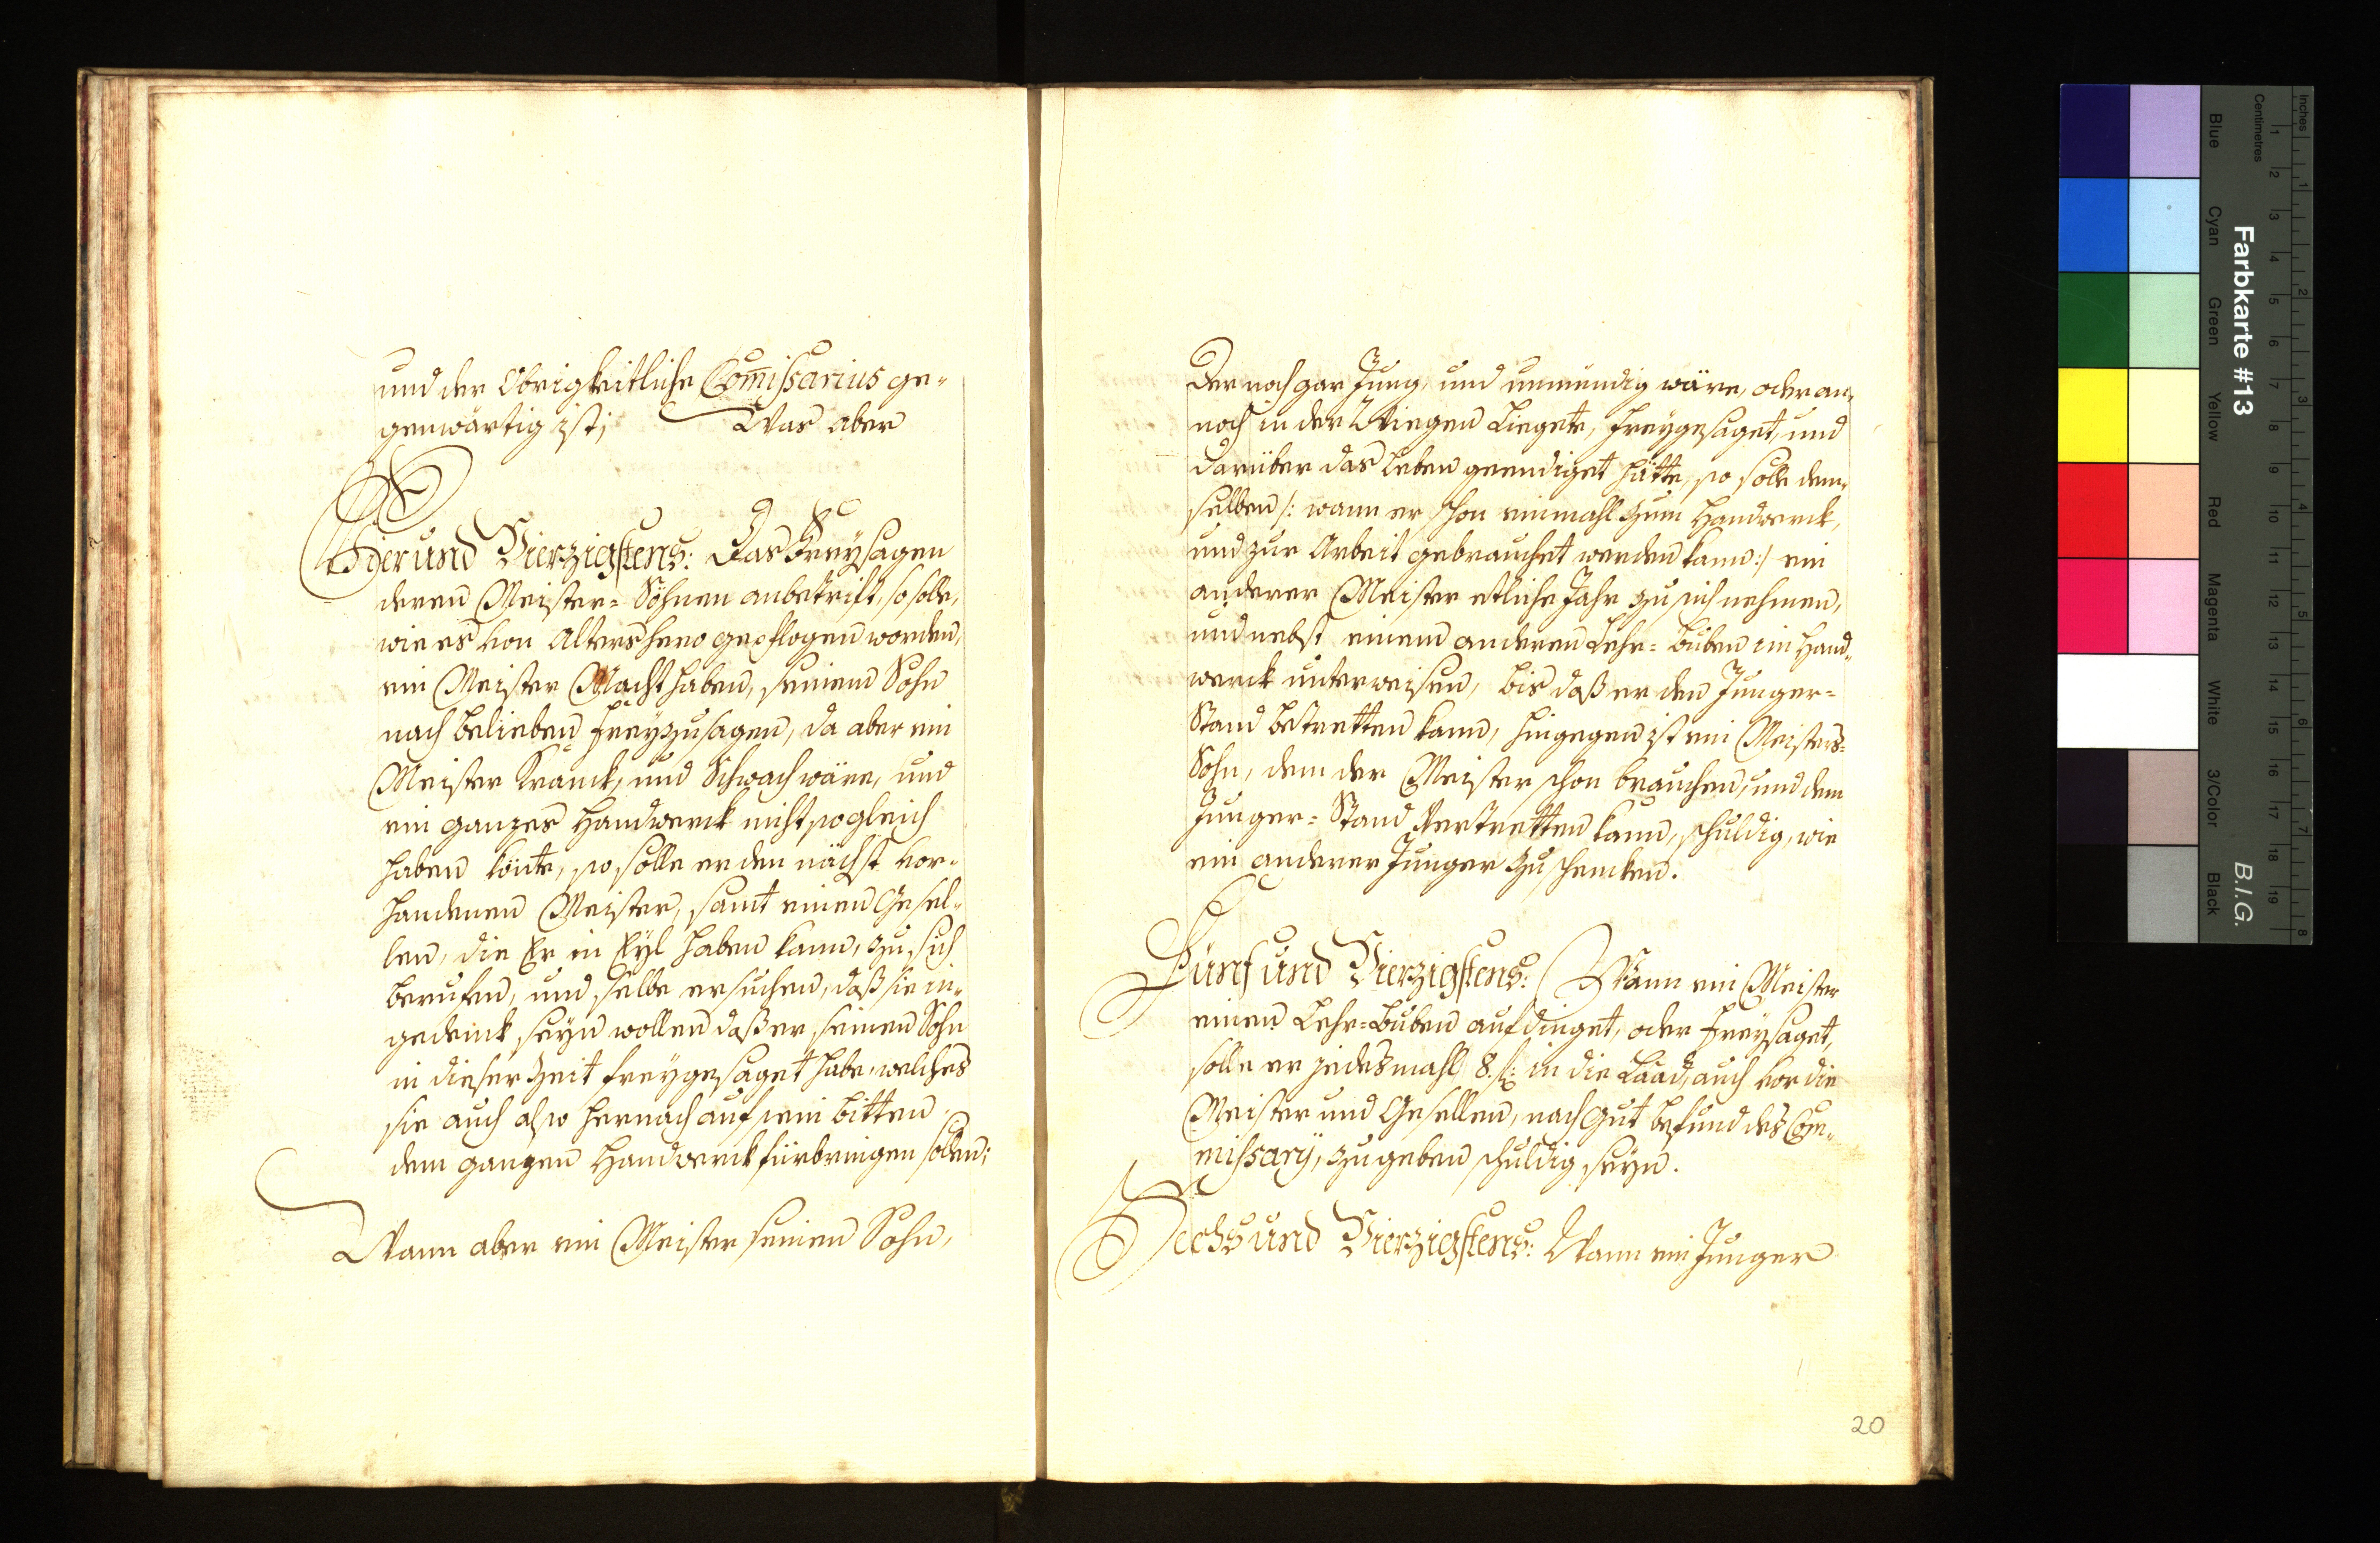 und der Obrigkeitliche Com̅issarius ge-
genwärtig ist; Was aber
Vier und Vierzigstens: Das Freysagen
deren Meister-Söhnen anbetrift, so solle,
wie es von Altershero gepflogen worden,
ein Meister Macht haben, seinem Sohn
nach belieben freyzusagen, da aber ein
Meister Kranck, und Schwach wäre, und
ein ganzes Handwerck nicht so gleich
haben könte, so solle er den nächst vor-
handenen Meister, samt einen Gesel-
len, die Er in Eyl haben kann, zu sich
berufen, und selbe ersuchen, daß sie in-
gedenck seyn wollen daß er seinen Sohn
in dieser Zeit freygesaget habe, welches
sie auch also hernach auf sein bitten
dem ganzen Handwerck fürbringen sollen;
Wann aber ein Meister seinen Sohn,
Der noch gar Jung, und unmündig wäre, oder an-
noch in der Wiegen Liegete, freygesaget, und
darüber das Leben geendiget hätte, so solle dem-
selben /: wann er schon einmahl zum Handwerck,
und zur Arbeit gebrauchet werden kann :/ ein
anderer Meister etliche Jahr zu sich nehmen,
und nebst einem anderen Lehr-buben im Hand-
werck unterweisen, bis daß er den Junger-
Stand betretten kann, hingegen ist ein Meisters-
Sohn, den der Meister schon brauchen, und dem
Junger-Stand Vertretten kann, schuldig, wie
ein anderer Junger zu schencken.
Fünf und Vierzigstens: Wann ein Meister
einen Lehr-Buben aufdinget, oder freysaget,
solle er jedesmahl 8. ß: in die Laad, auch vor die
Meister und Gesellen, nach Gut befund des Com-
missarij, zu geben schuldig seyn.
Sechs und Vierzigstens: Wann ein Junger
20
Inches
Centimetres
1 2 3 4 5 6 7 8
1 2 3 4 5 6 7 8 9 10 11 12 13 14 15 16 17 18 19
Farbkarte #13
B.I.G.
Blue Cyan Green Yellow Red Magenta White 3/Color Black